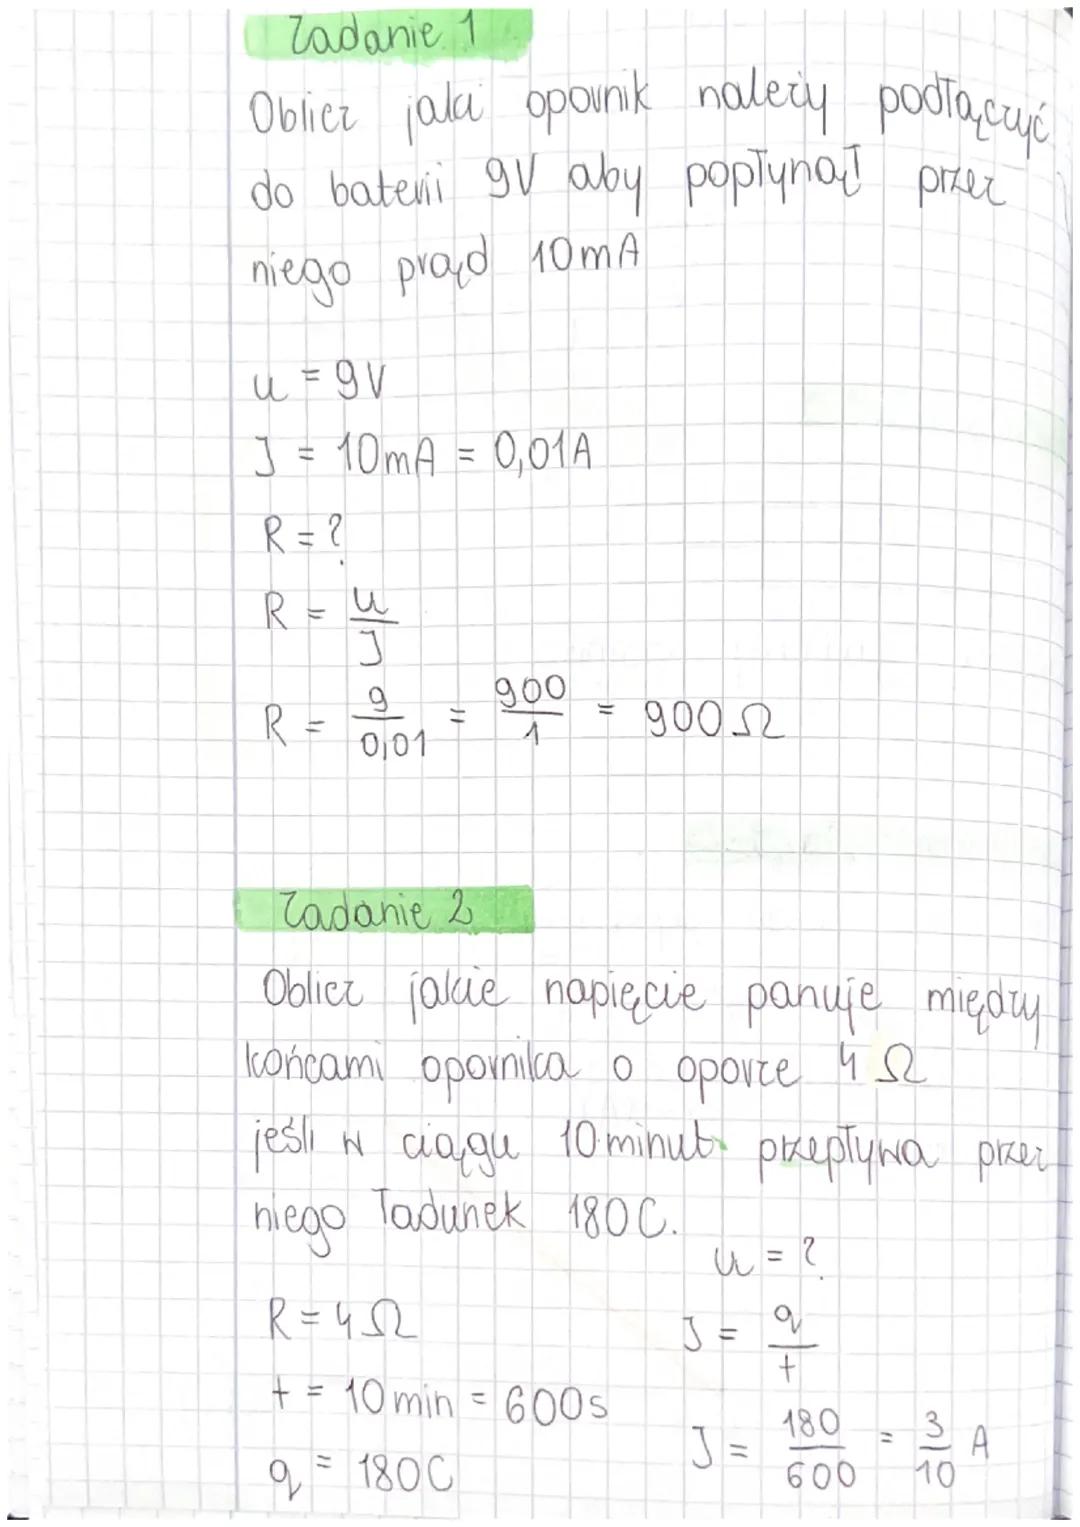 Zadanie 1
Oblicz jaki opornik należy podłączyć
do baterii 9V aby popłynął przez
niego prąd 10mA
u = 9V
J = 10mA = 0,01A
R = ?
R = u/J
R = 9/0,01 = 900/1 = 900Ω
Zadanie 2
Oblicz jakie napięcie panuje między
końcami opornika o oporze 4Ω
jeśli w ciągu 10 minut przepływa przez
niego ładunek 180C.
u = ?
R = 4Ω
J = q/t
t = 10min = 600s
J = 180/600 = 3/10 A
q = 180C